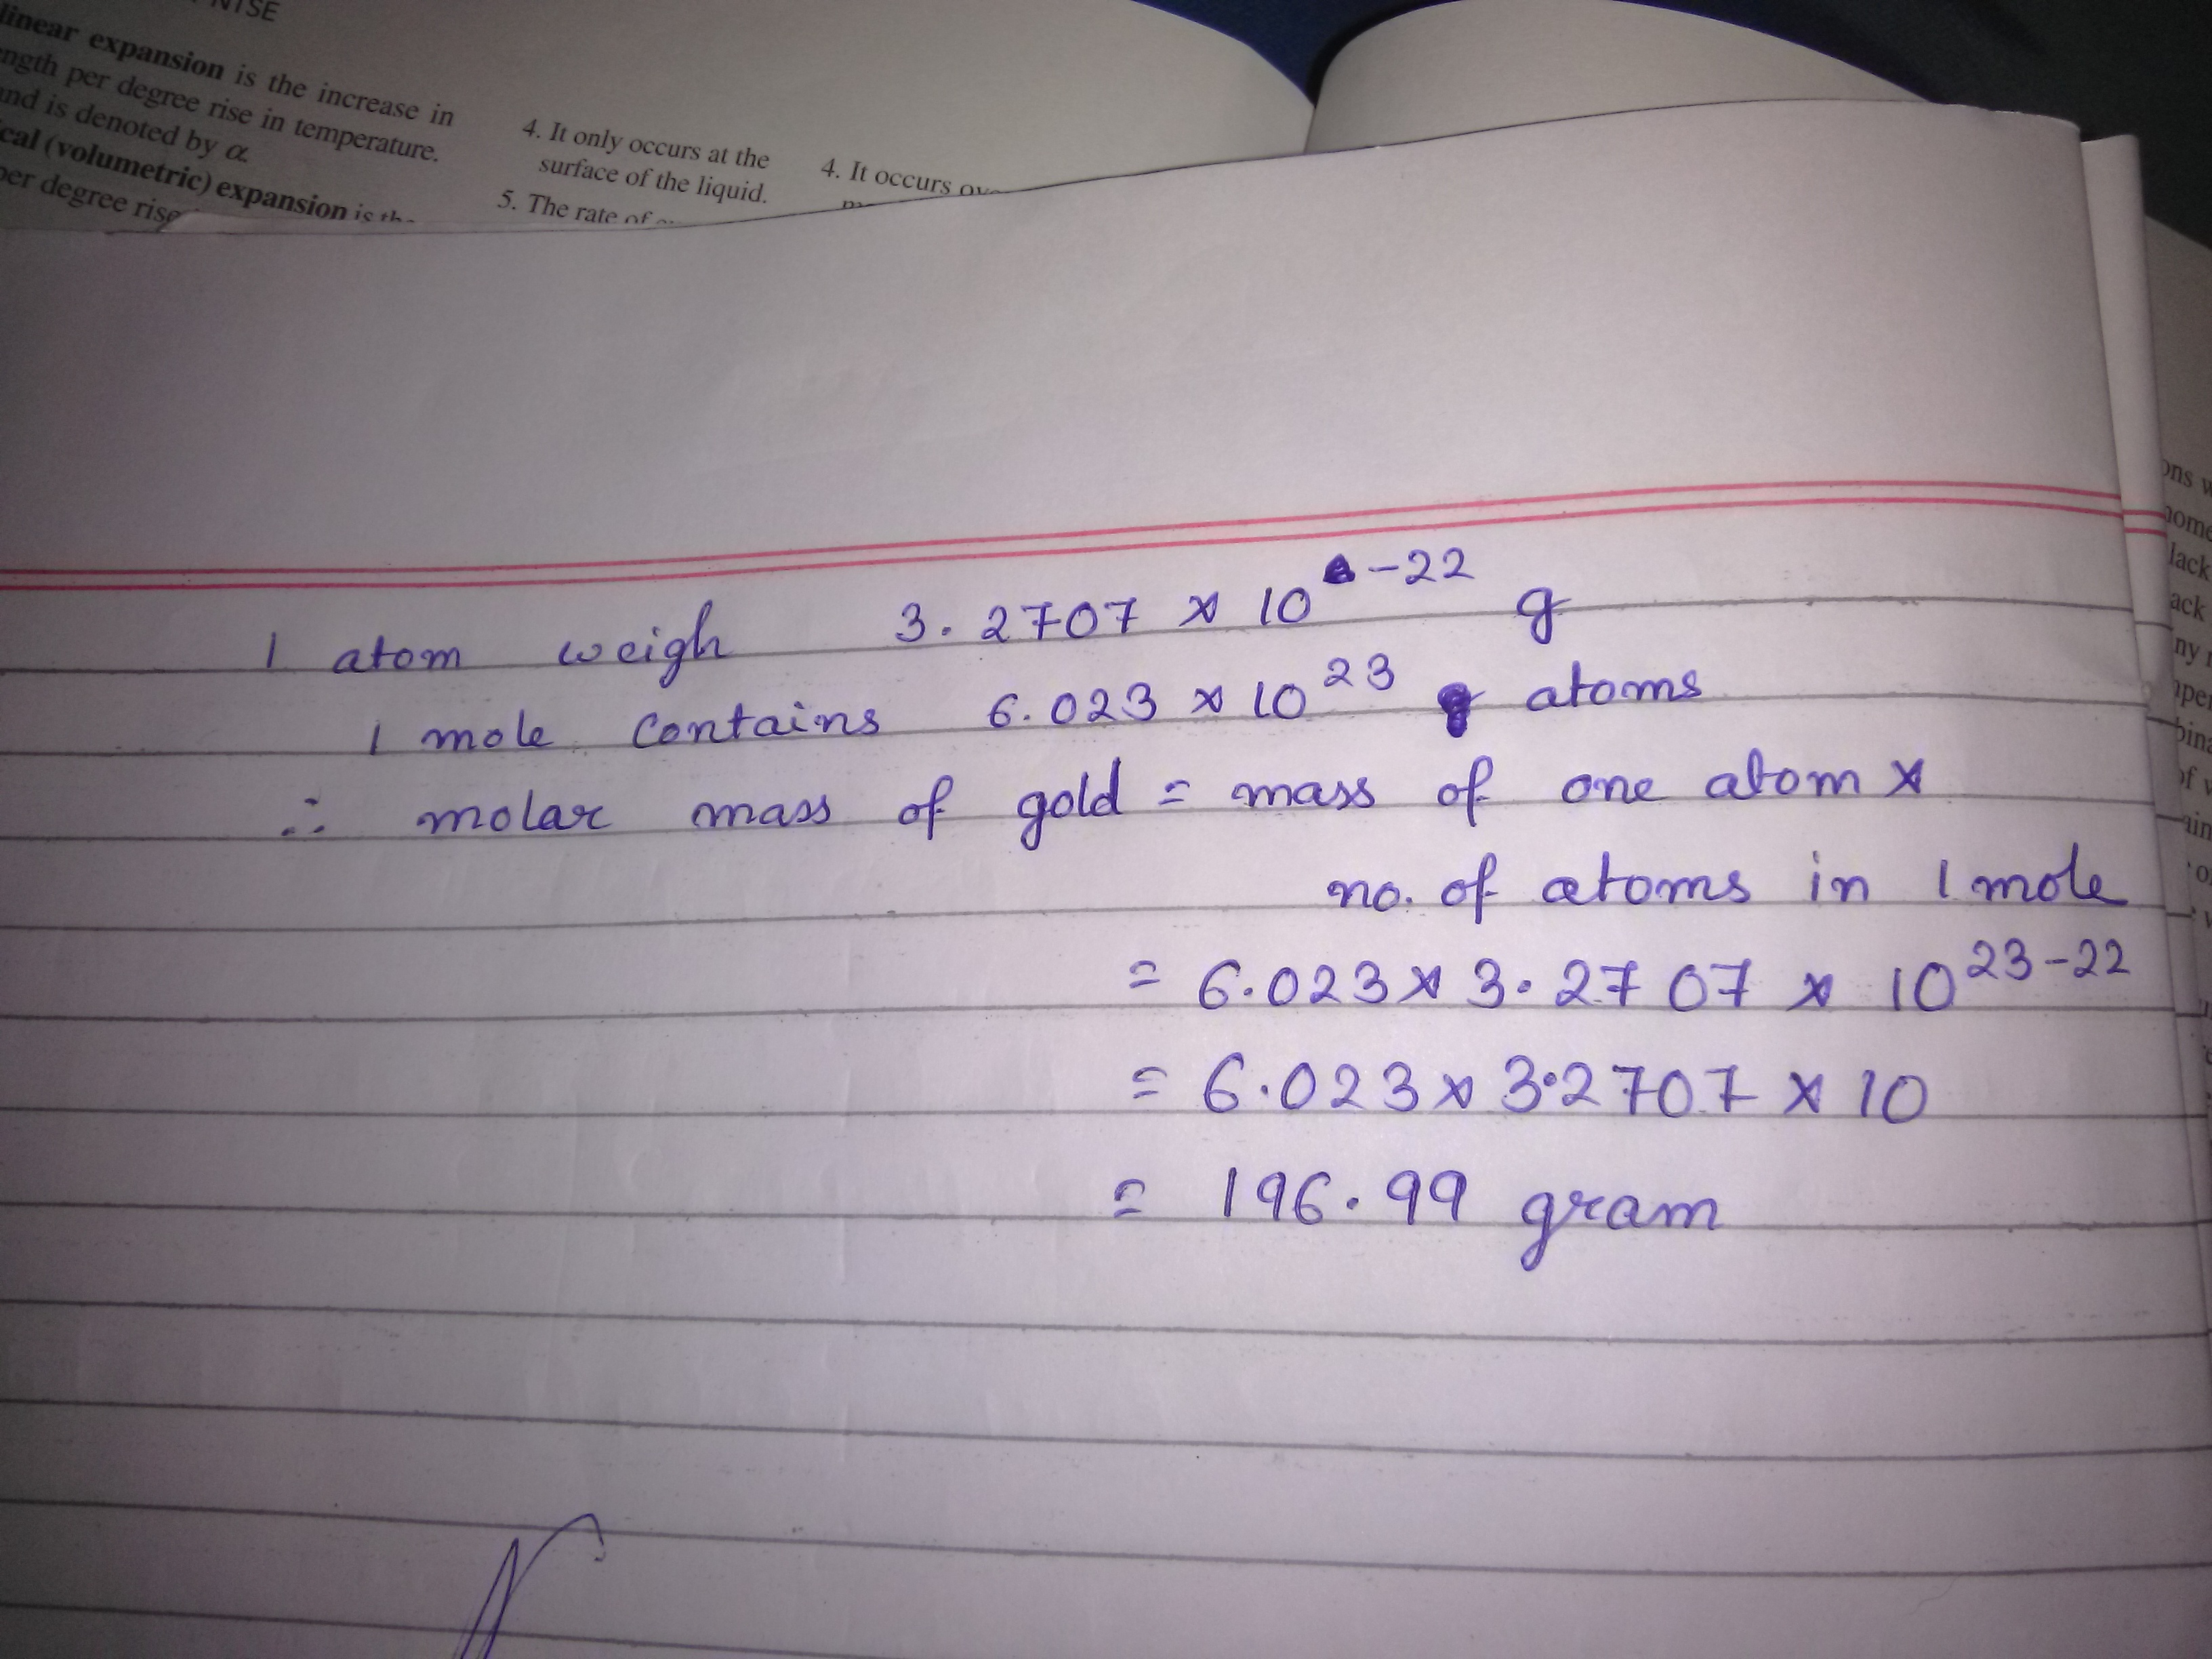 NTSE
linear expansion is the increase in
ength per degree rise in temperature.
and is denoted by α
cal (volumetric) expansion is the
per degree rise
4. It only occurs at the
surface of the liquid.
5. The rate of
4. It occurs
1 atom weigh 3.2707 × 10^-22 g
1 mole contains 6.023 × 10^23 atoms
∴ molar mass of gold = mass of one atom ×
no. of atoms in 1 mole
= 6.023 × 3.2707 × 10^23-22
= 6.023 × 3.2707 × 10
= 196.99 gram